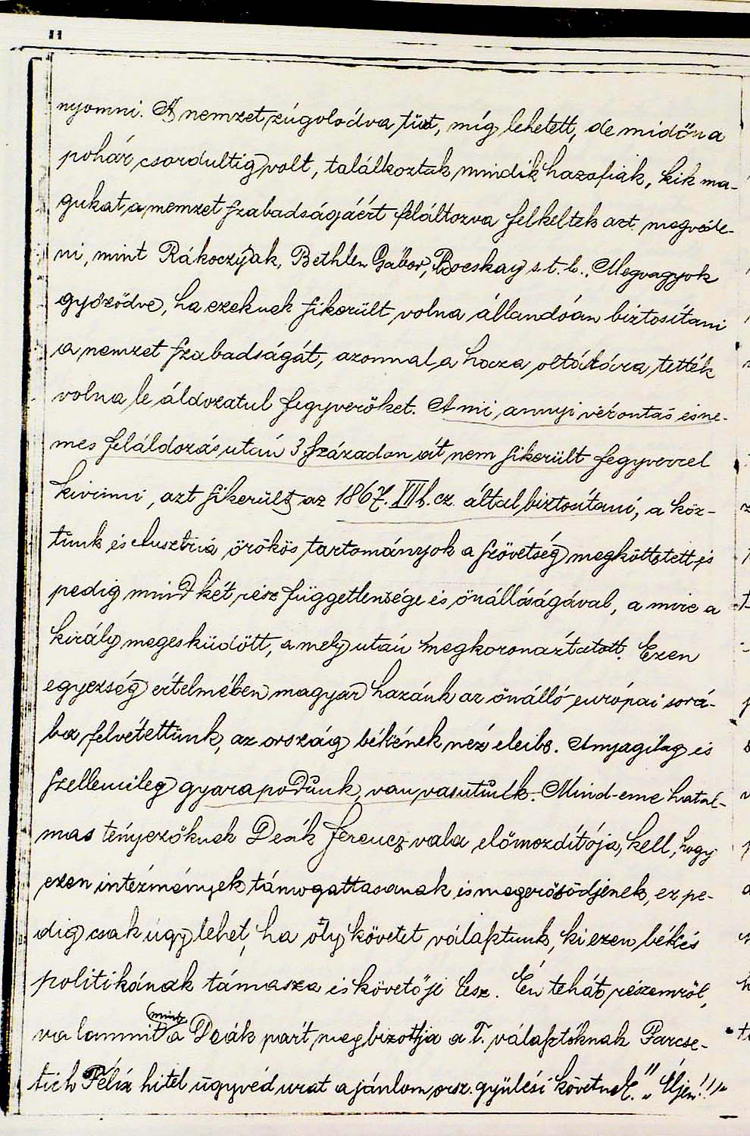 11
nyomni. A nemzet zúgolódva tűrt, míg lehetett, de midőn a
pohár csordultig volt, találkoztak mindik hazafiak, kik ma-
gukat a nemzet szabadságáért feláltozva felkeltek azt megvéde-
ni, mint Rákoczyak, Bethlen Gábor, Bocskay s.t.b. Megvagyok
győződve, ha ezeknek sikerült volna állandóan biztosítani
a nemzet szabadságát, azonnal a haza oltárára tették
volna le áldozatul fegyverőket. A mi annyi vérontás és ne-
mes feláldozás után 3 századon át nem sikerült fegyverrel
kivinni, azt sikerült az 1867. XII t. cz. által biztosítani, a köz-
tünk és Ausztria örökös tartományok a szövetség megköttetett és
pedig mind két rész függetlensége és önállóságával, a mire a
király megesküdött, a mely után megkoronáztatott. Ezen
egyezség értelmében magyar hazánk az önálló európai sorá-
ba felvétettünk, az ország békének néz eleibe. Anyagilag és
szellemileg gyarapodunk, van vasutunk. Mind-eme hatal-
mas tényezőknek Deák Ferencz vala előmozdítója, kell, hogy
ezen intézmények támogattassanak és megerősödjenek, ez pe-
dig csak úgy lehet, ha oly követet választunk, ki ezen békés
politikának támasza és követője lesz. Én tehát részemről,
valamint mint a Deák párt megbizottja a T. választóknak Parcse-
tich Félix hitel ügyvéd urat ajánlom orsz. gyülési követnek." "Éljen!!!"